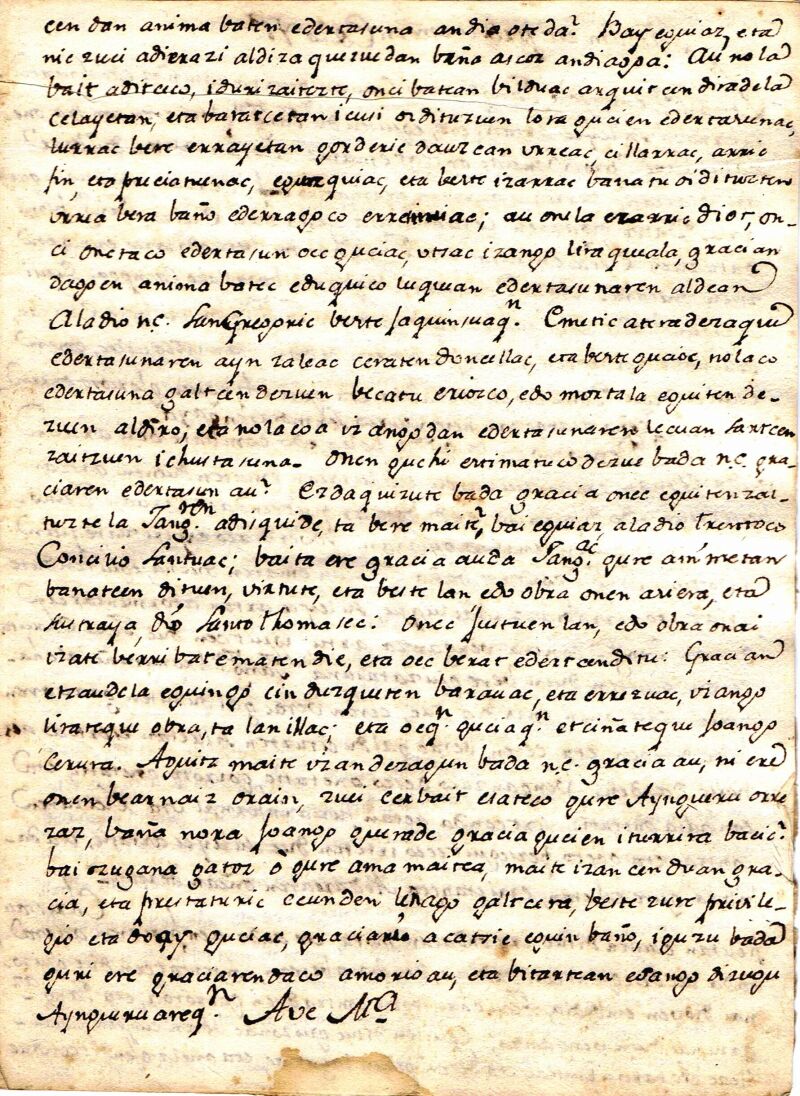 cen dan anima baten edertasuna andia ote da? Bay eguiaz, eta
nic zuei adierazi aldiza quezuedan baño ascoz andiagoa: Au nola
bait aditceco, iduri zaitezte, onci batean bilduac arquitcen dirade la
celayetan, eta baratcetan icusi oi dituzuen lora gucien edertasunac,
lurrac bere errayetan gorderic dauzcan urreac, cillarrac, arric
fin, eta preciatuenac, eguzquiac, eta beste izarrac banatu oi dituzten
urrea bera baño ederragoco erraiñuac; au onela ezarric diot, on-
ci onetaco edertasun oec guciac, utsac izango lira queala, gracian
dagoen anima batec eduquico luquean edertasunaren aldean
Ala dio n.c. San Gregoric beste jaquinsuaqn. Emetic atera dezaque
edertasunaren ayn zaleac ceraten doncellac, eta beste gucioc, nolaco
edertasuna galtcen dezuen becatu eriozco, edo mortala eguiten de-
zuen aldiro, eta nolacoa izango dan edertasunaren lecuan sartcen
zaitzuen ichustasuna. Onen guchi estimatuco dezue bada n.c. gra-
ciaren edertasun au? Ez daquizute bada gracia onec eguiten zai-
tuztela Jang.ren adisquide, ta bere maite? bai eguiaz, ala dio Trentoco
Concilio Santuac; baita ere gracia au da Jang.ac gure animetan
banatcen dituen, virtute, eta beste lan edo obra onen asiera, eta
sustraya, dio Santo Thomasec: Onec justuen lan, edo obra onai
izate berri bat ematen die, eta oec berac edertcen ditu: Gracian
etzaudela eguingo cinduzqueten barauac, eta errezuac, izango
lirateque obra, ta lan illac; eta oeqn guciaqn etciñateque joango
cerura. Aguitz maite izan dezagun bada n.c. gracia au, ni ere
onen bearnaiz orain, zuei cerbait esateco gure Ayngueru orre
zaz, baña nora joango guerade gracia gucien iturrira baicic?
bai zugana gatoz ò gure ama maitea, maite izan cenduan gra-
cia, eta prestaturic ceunden lenago galtcera, beste zure privile-
gio eta doay guciac, graciaric acatsic eguin baño, iguzu bada
guri ere graciarendaco amorio au, eta bitartean esango dizugu
Aynguruareqn. Ave Ma